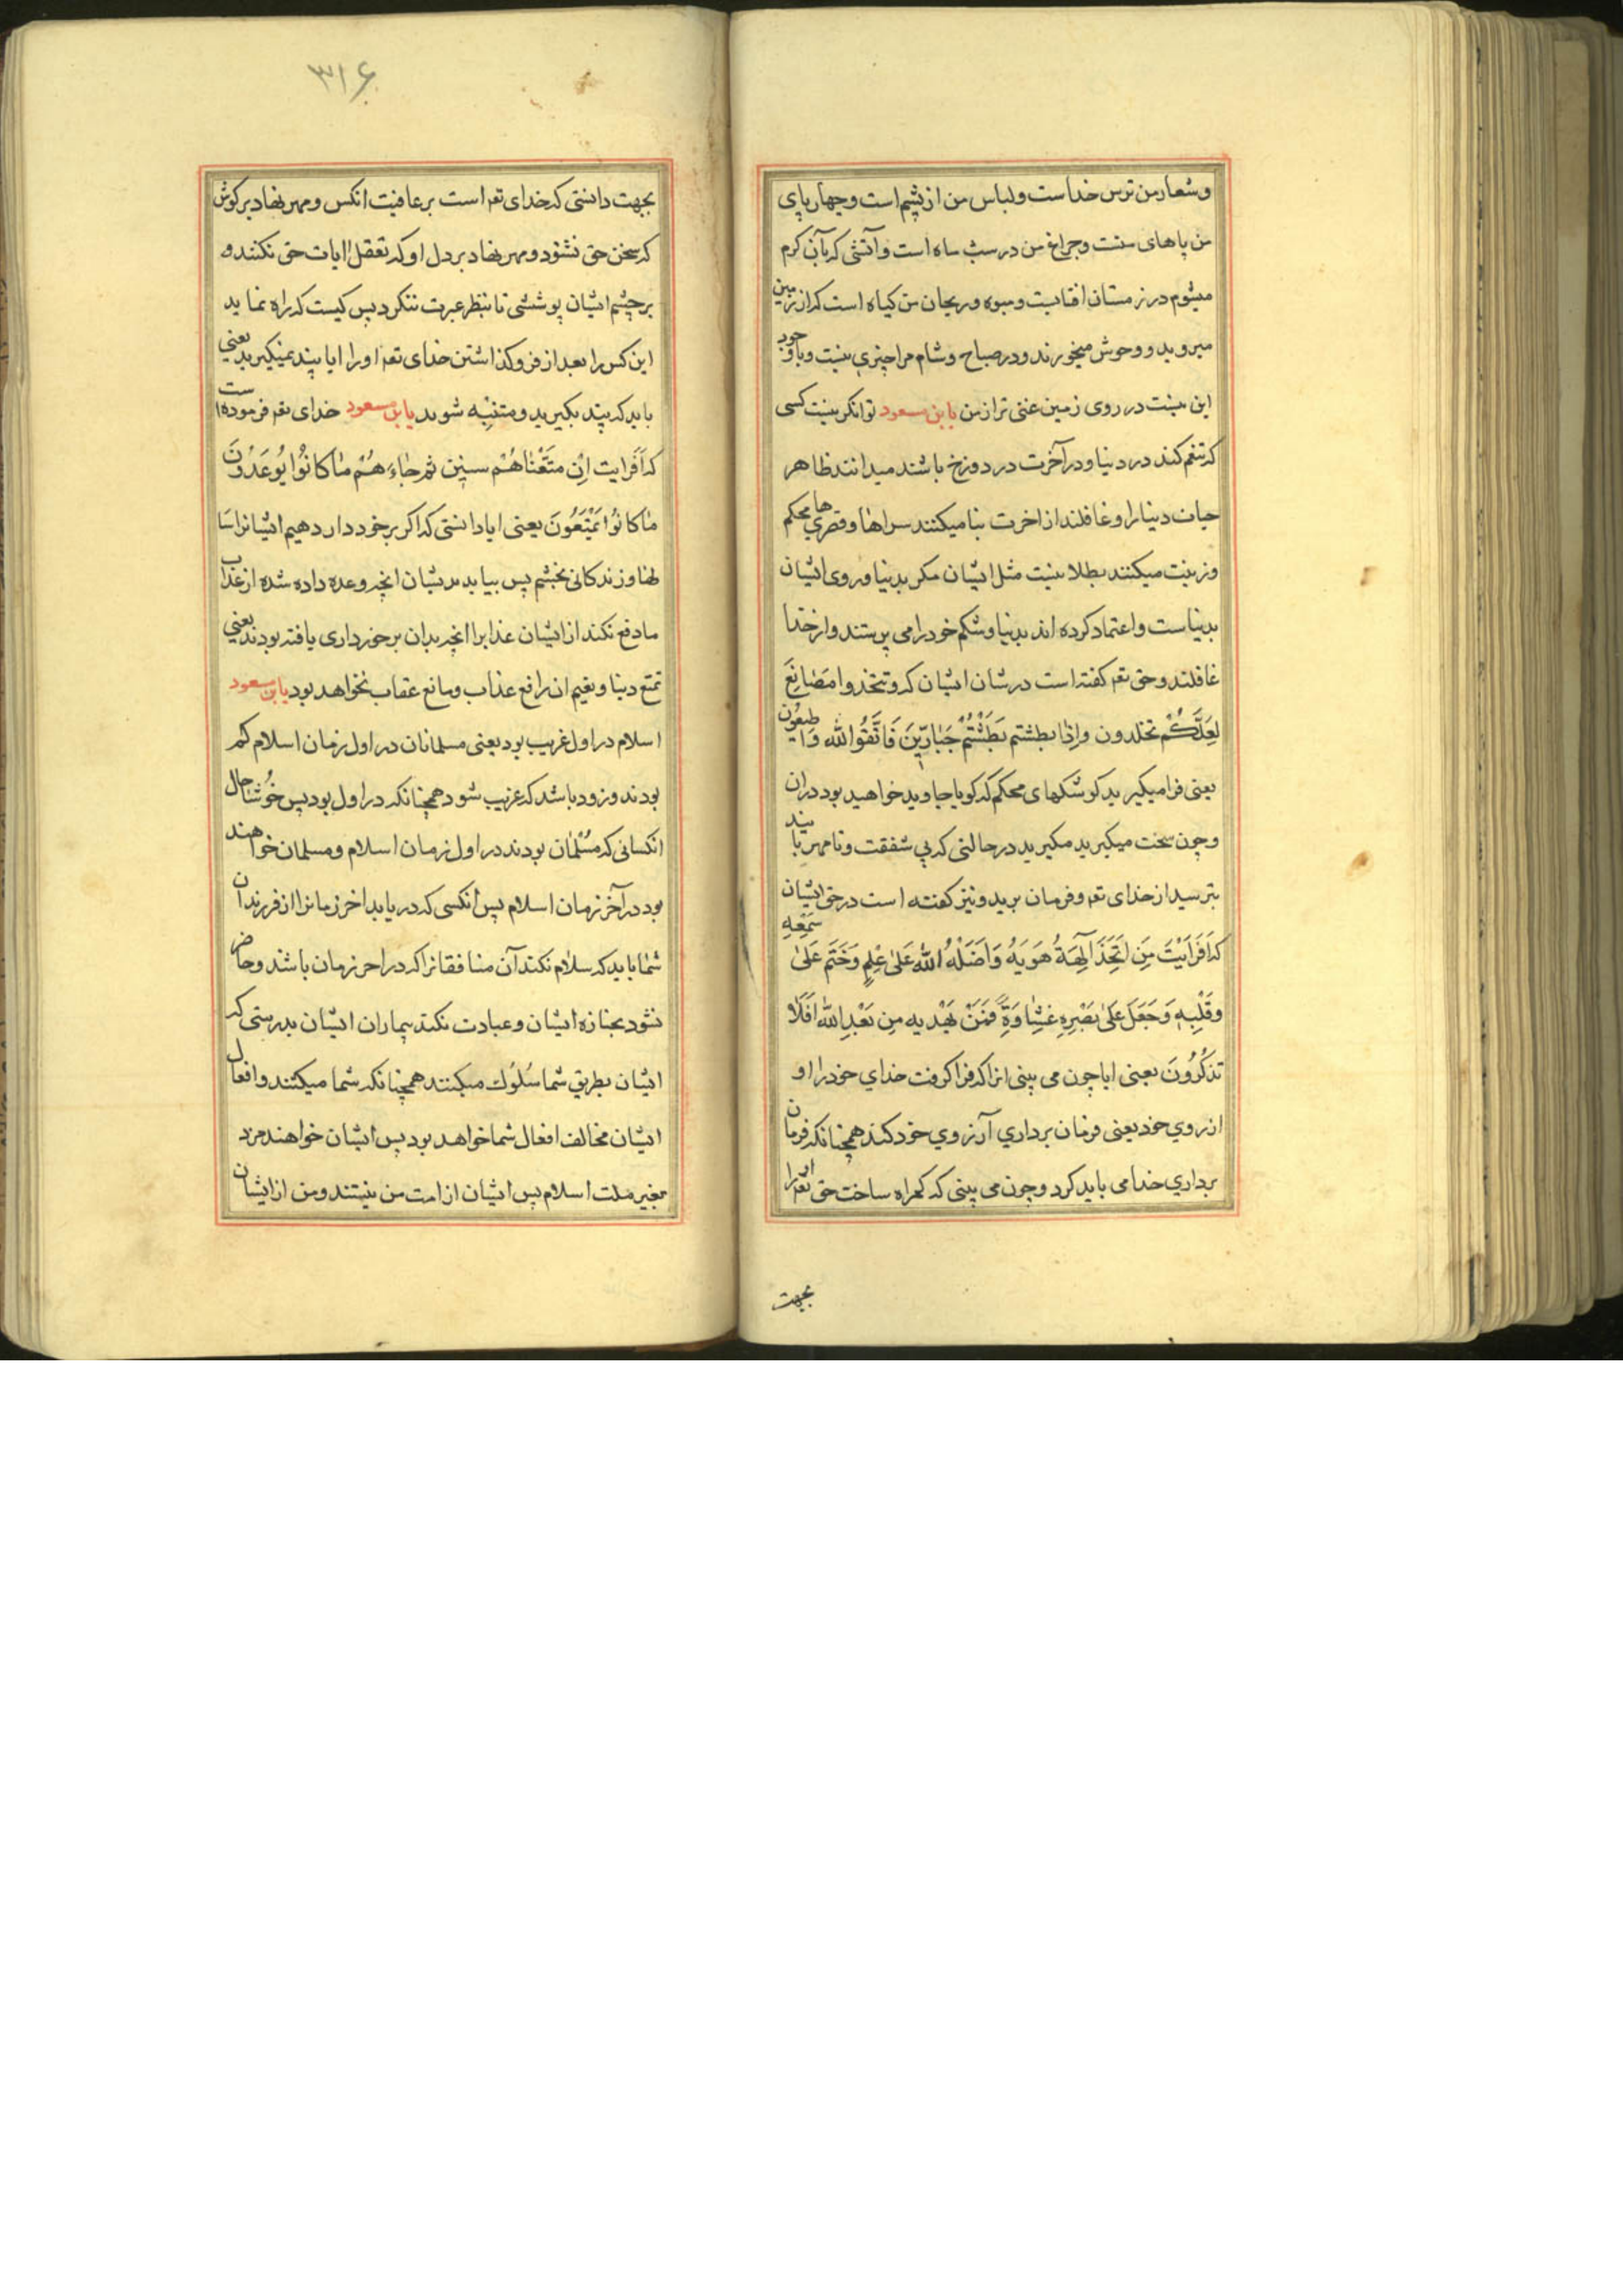 وشعار من ترس خداست ولباس من از پشم است وچهار پای
من پاهای منست وچراغ من در شب ماه است وآتشی که بآن کرم
میشوم در زمستان افتابست ومیوه وریحان من کیاه است که از زمین
میروید ووحوش میخورند ودر صباح وشام مرا چیزی نیست وباوجود
این نیست در روی زمین غنی تر از من یا بن مسعود توانکر نیست کسی
که تنعم کند در دنیا ودر آخرت در دوزخ باشند میدانند ظاهر
حیات دنیا را وغافلند از اخرت بنا میکنند سراها وقصرهای محکم
وزینت میکنند بطلا نیست مثل ایشان مکر بدنیا وروی ایشان
بدنیاست واعتماد کرده اند بدنیا وشکم خود را می پرستند واز خدا
غافلند وحق تعم کفته است در شان ایشان که وتتخذوا مَصٰانِعَ
لَعَلَّكُمْ تخلدون وإِذٰا بطشتم بَطَشْتُمْ جَبٰارّينَ فَاتَّقُوا الله وَاطیعُون
یعنی فرا میکیرید کوشکهای محکم که کویا جاوید خواهید بود دران
وچون سخت میکیرید مکیرید در حالتی که بی شفقت ونامهربانید
بترسید از خدای تعم وفرمان برید ونیز کفته است در حق ایشان
که اَفَرَاَیْتَ مَنِ اتَّخَذَ آلِهَةُ هَوٰیهُ وَاَضَلَّهُ اللّٰه عَلیٰ عِلْمٍ وَخَتَمَ عَلیٰ سَمْعِهِ
وقَلْبِهِ وَجَعَلَ عَلیٰ بَصَرِهِ غِشٰاوَةً فَمَنْ یَهْدیه مِن بَعْدِ اللّٰه اَفَلاٰ
تذکُرُونَ یعنی ایا چون می بینی انرا که فرا کرفت خدای خود را او
از روی خود یعنی فرمان برداری آرزوی خود کند همچنانکه فرمان
برداری خدا می باید کرد وچون می بینی که کمراه ساخت حق تعم اورا
بجهت
۳۱۶
بجهت دانستی که خدای تعم است بر عاقبت انکس ومهر نهاد بر کوش
که سخن حق نشنود ومهر نهاد بر دل او که تعقل ایات حق نکند و
بر چشم ایشان پوششی تا بنظر عبرت ننکرد پس کیست که راه نماید
این کس را بعد از فرو کذاشتن خدای تعم اورا ایا پند نمیکیرید یعنی
باید که پند بکیرید ومتنبّه شوید یا بن مسعود خدای تعم فرموده است
که اَفَرایت اِن متَّعْنٰاهُمْ سنین ثم جٰاءَهُمْ مٰا کانُوا یُوعَدُونَ
مٰا کٰانُوا یَمْتَعُونَ یعنی ایا دانستی که اکر برخوردار دهیم ایشانرا سا
لها وزندکانی بخشیم پس بیاید بدیشان انچه وعده داده شده از عذاب
ما دفع نکند از ایشان عذابرا انچه بدان برخورداری یافته بودند یعنی
تمتع دنیا ونعیم ان رافع عذاب ومانع عقاب نخواهد بود یا بن مسعود
اسلام در اول غریب بود یعنی مسلمانان در اول زمان اسلام کم
بودند وزود باشد که غریب شود همچنانکه در اول بود پس خوُشا حال
انکسانی که مُسْلمٰان بودند در اول زمان اسلام ومسلمان خواهند
بود در آخر زمان اسلام پس انکسی که دریابد اخر زمانرا از فرزندان
شما باید که سلام نکند آن منافقانرا که در اخر زمان باشد وحاضر
نشود بجنازه ایشان وعیادت نکند بیماران ایشان بدرستی که
ایشان بطریق شما سُلوُك میکنند همچنانکه شما میکنند وافعال
ایشان مخالف افعال شما خواهد بود پس ایشان خواهند مرد
بغیر ملت اسلام پس ایشان از امت من نیستند ومن از ایشان